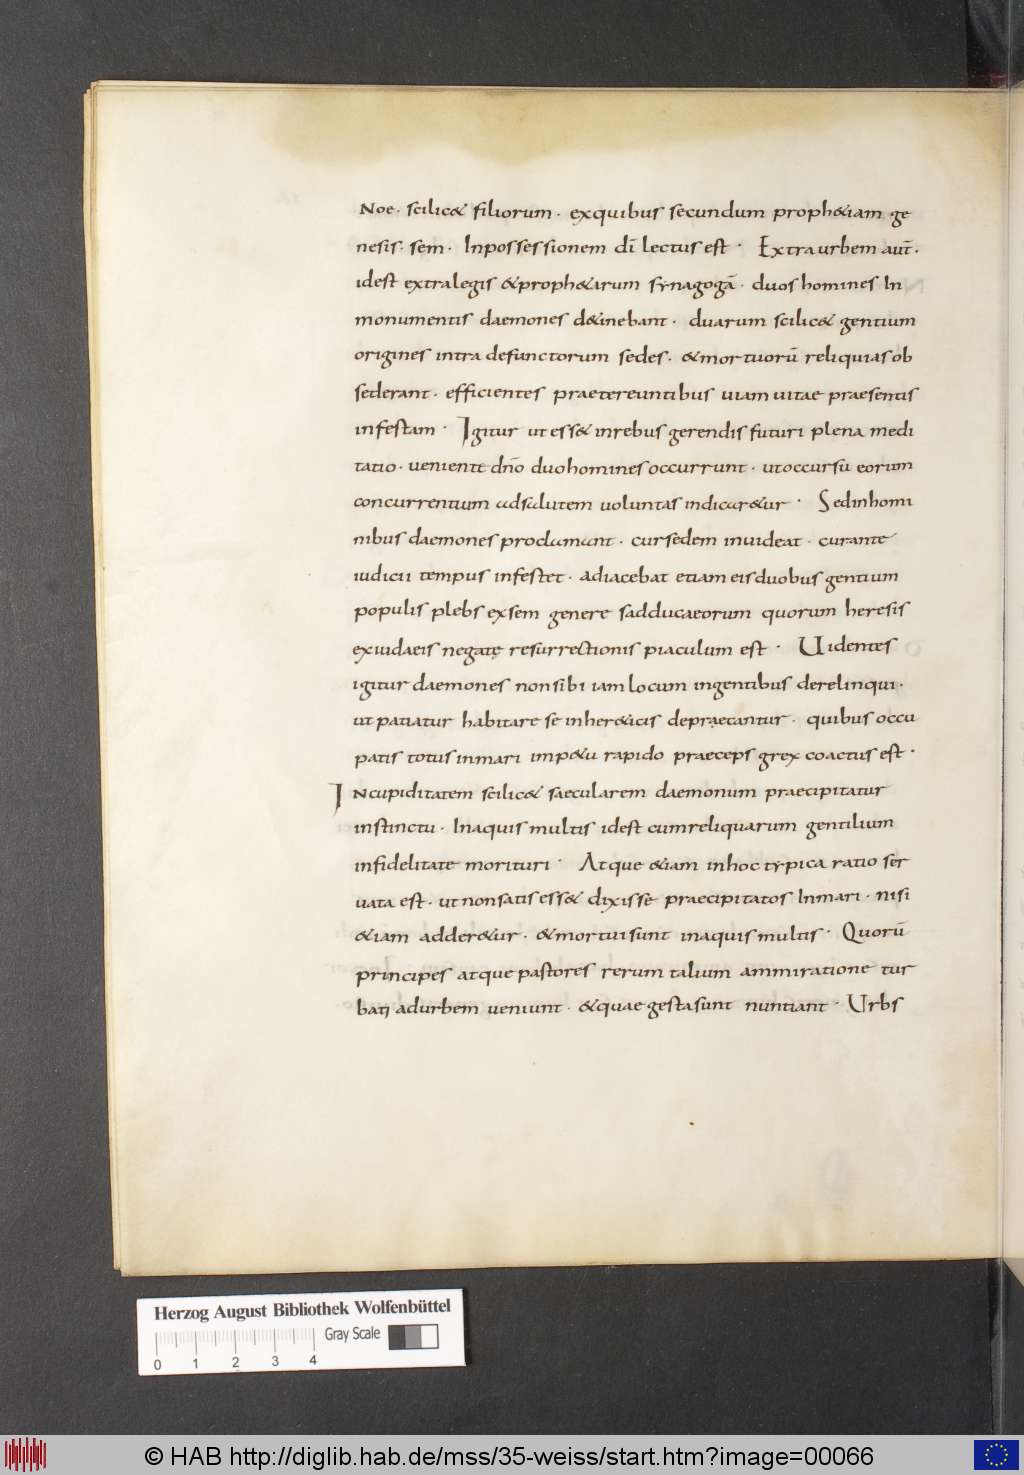 Noe · scilic& filiorum · exquibus secundum proph&iam ge
nesis · sem · Inpossessionem dī lectus est · Extra urbem aut̄ ·
idest extralegis &proph&arum synagogā · duos homines In
monumentis daemones d&inebant · duarum scilic& gentium
origines intra defunctorum sedes · &mortuorū reliquias ob
sederant · efficientes praetereuntibus uiam uitae praesentis
infestam · Igitur ut ess& inrebus gerendis futuri plena medi
tatio · ueniente dn̄o duo homines occurrunt · utoccursū eorum
concurrentium adsalutem uoluntas indicar&ur · Sedinhomi
nibus daemones proclamant · cur sedem inuideat · cur ante
iudicii tempus infestet · adiacebat etiam eis duobus gentium
populis plebs exsem genere sadducaeorum quorum heresis
exiudaeis negatę resurrectionis piaculum est · Uidentes
igitur daemones non sibi iam locum ingentibus derelinqui ·
ut patiatur habitare se inher&icis depraecantur · quibus occu
patis totus inmari imp&u rapido praeceps grex coactus est ·
INcupiditatem scilic& saecularem daemonum praecipitatur
instinctu · Inaquis multis idest cumreliquarum gentilium
infidelitate morituri · Atque &iam inhoc typica ratio ser
uata est · ut nonsatis ess& dixisse praecipitatos Inmari · nisi
&iam adder&ur · &mortui sunt inaquis multis · Quorū
principes atque pastores rerum talium ammiratione tur
bati adurbem ueniunt · &quae gesta sunt nuntiant · Urbs
Herzog August Bibliothek Wolfenbüttel
Gray Scale
0 1 2 3 4
© HAB http://diglib.hab.de/mss/35-weiss/start.htm?image=00066